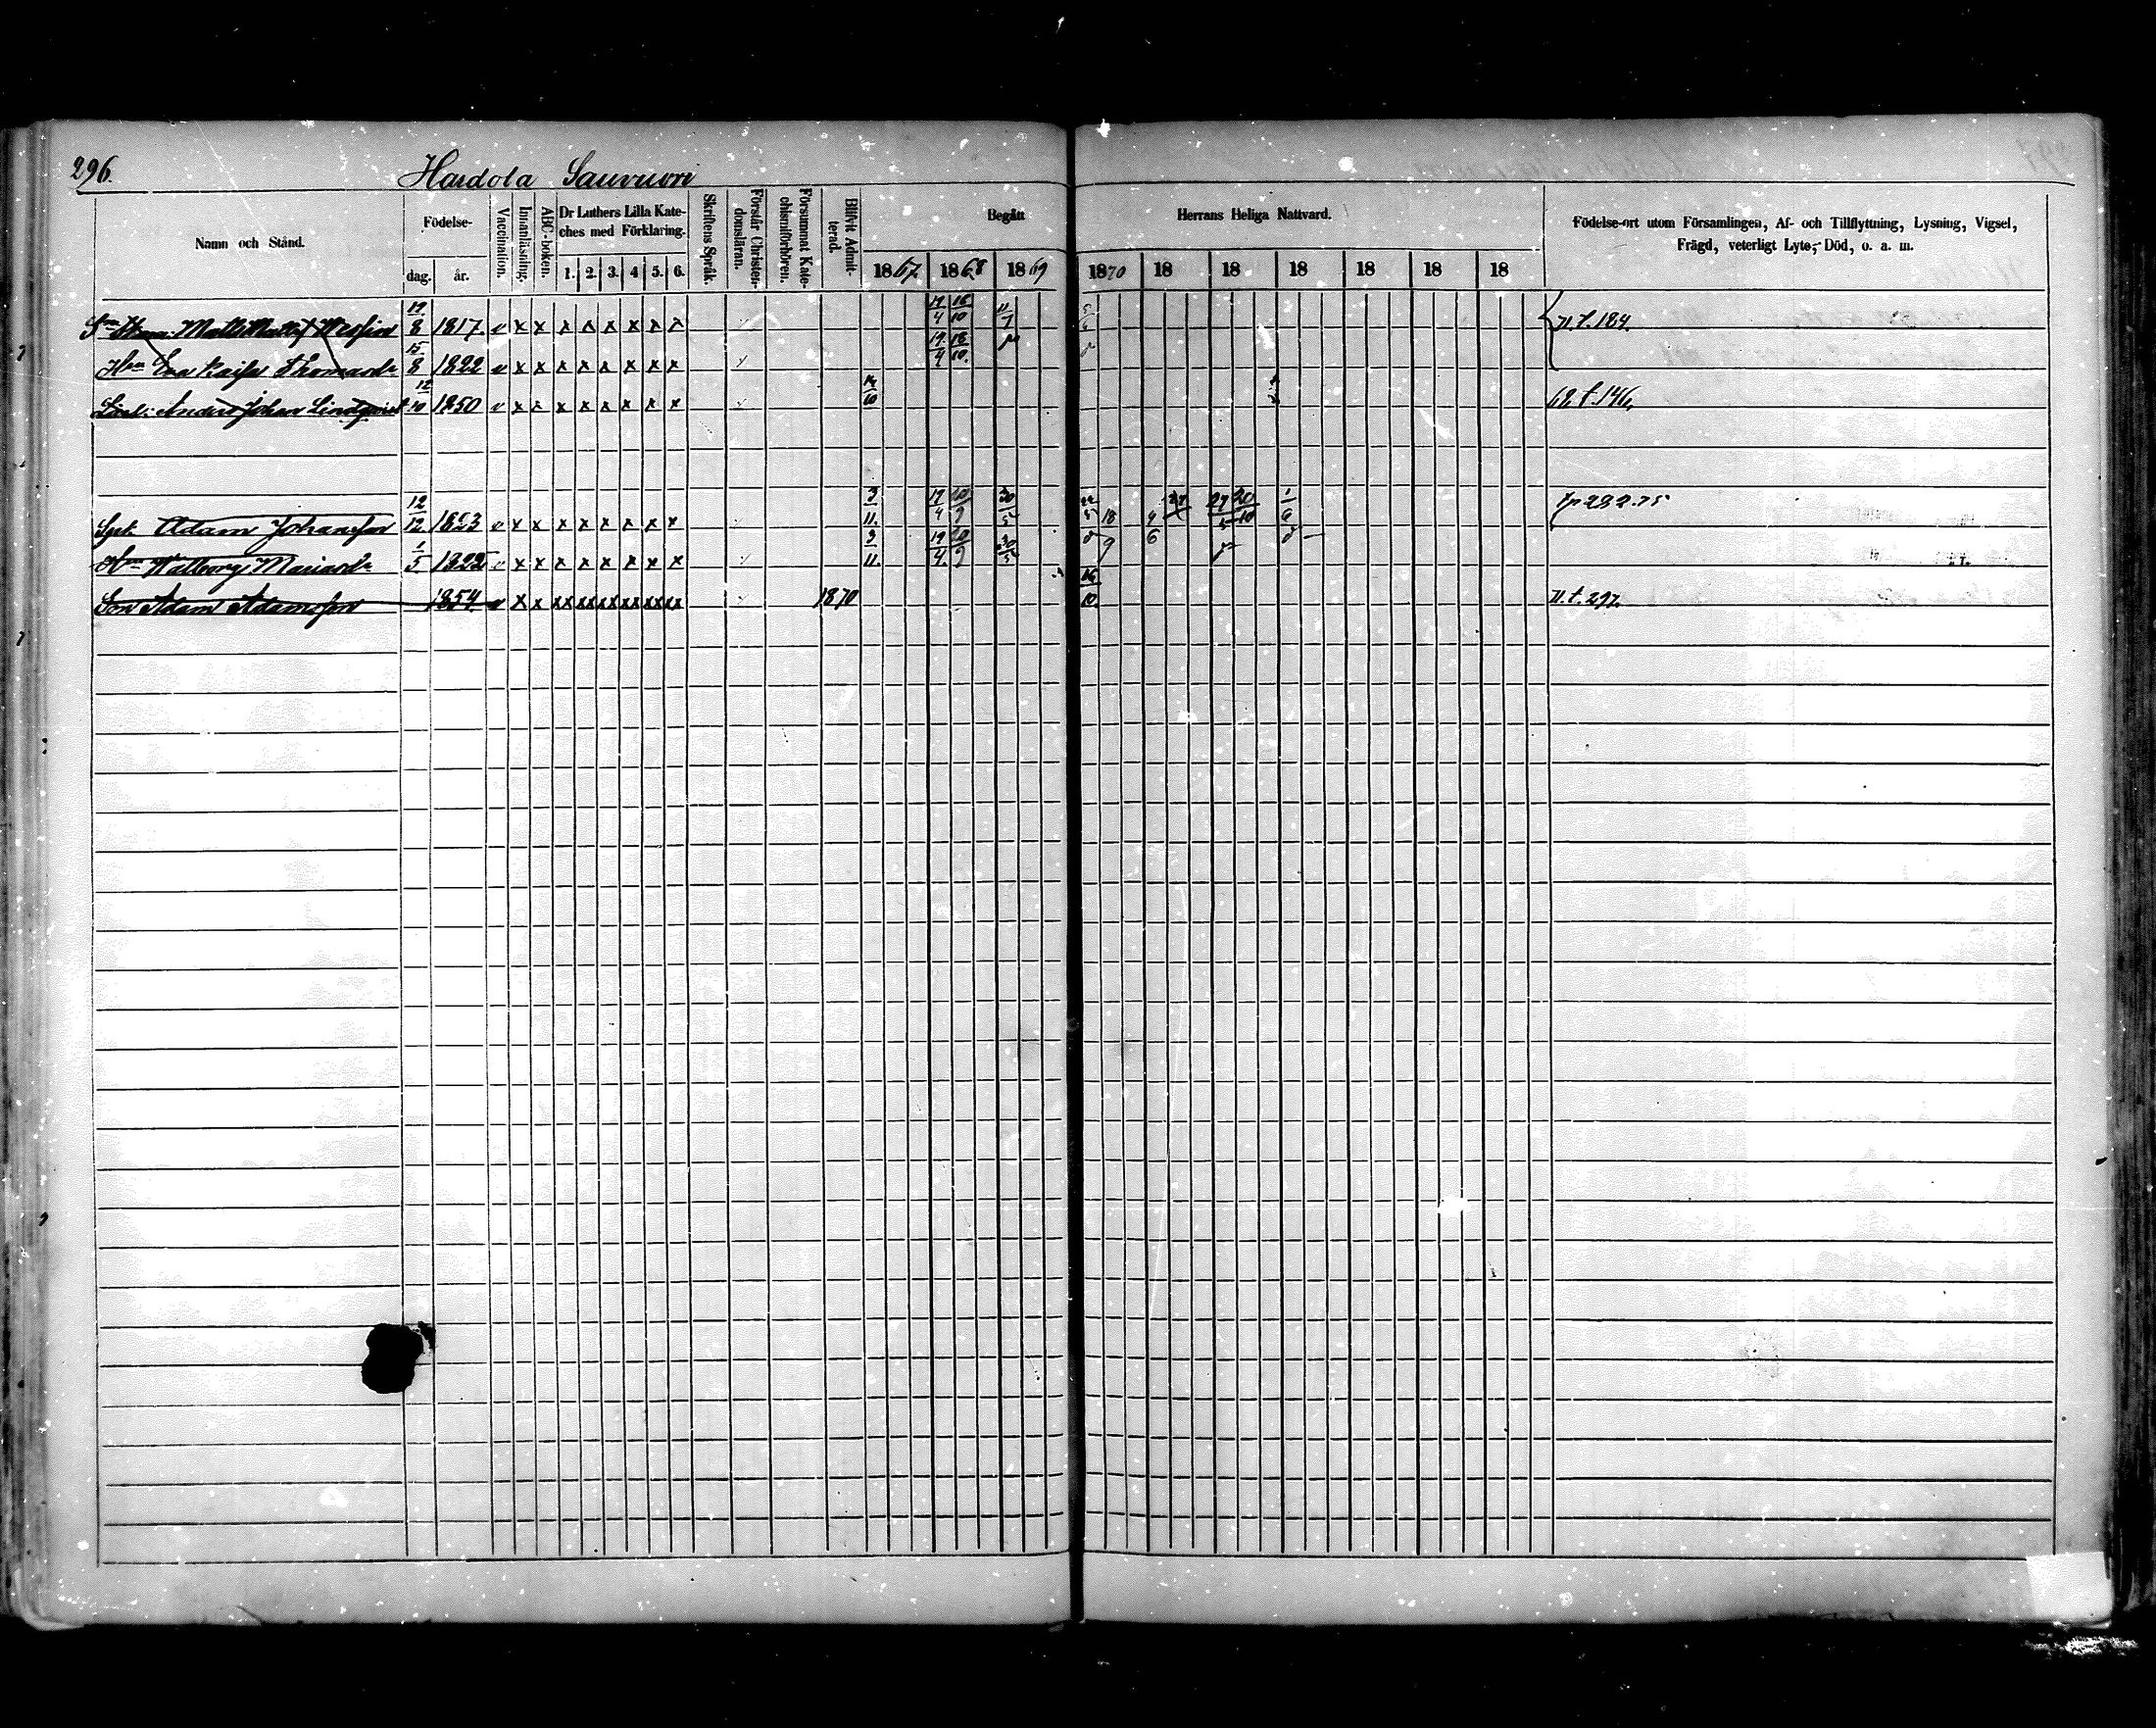 296.
Hardola Sauvuori
Namn och Stånd.
Födelse-
dag. år.
Vaccination.
Innanläsning.
ABC-boken.
Dr Luthers Lilla Kate-
ches med Förklaring.
1. 2. 3. 4 5. 6.
Skriftens Språk.
Förstår Christen-
domsläran.
Försummat Kate-
chismiförhören.
Blifvit Admit-
terad.
Begått Herrans Heliga Nattvard.
1867. 1868 1869 1870 18 18 18 18 18 18
Födelse-ort utom Församlingen, Af- och Tillflyttning, Lysning, Vigsel,
Frägd, veterligt Lyte, Död, o. a. m.
Matts 8 1817 v x x x x x x x x 71. t. 184.
Hm Eva Kaisa Thomasdr 15/8 1822 v x x x x x x x x
Anders Johan Lindqvist 12/10 1850 v x x x x x x x x 14/10 68. t. 146.
Adam Johansson 12/12 1823 v x x x x x x x x 3/11. 19/4 30/5
Hm Walborg Mariasdr 1/5 1822 v x x x x x x x x 3/11. 19/4. 30/5
Son Adam Adamsson 1854 v x x xx xx xx xx xx xx 1870 16/10. 71. t. 297.